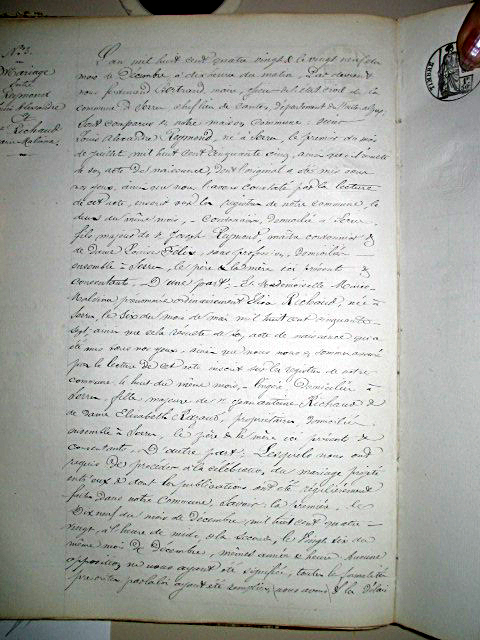 N.º 3.
Mariage
Entre
Reymond
Louis Alexandre
Et
Richaud
Marie Malvina
L'an mil huit cent quatre vingt & le vingt neuf du
mois de Décembre à dix heures du matin, Par devant
nous Ferdinand Bertrand, maire, officier de l'état civil de la
commune de Serres chef lieu de Canton, Département des Hautes Alpes,
Sont comparus en notre maison commune: Sieur
Louis Alexandre Reymond, né à Serres, le premier du mois
de juillet mil huit cent cinquante cinq, ainsi que il résulte
de son acte de naissance, dont l'original a été mis sous
nos yeux, ainsi que nous l'avons constaté par la lecture
de cet acte, inscrit sur les registres de notre commune, le
deux du même mois, - Cordonnier, domicilié à Serres
fils majeur de Sr Joseph Reymond, maître cordonnier &
de Dame Louise Félix, sans profession, domiciliés
ensemble à Serres, le père & la mère ici présents &
consentants. D'une part; Et Mademoiselle Marie
Malvina prénommée ordinairement Elisa Richaud, née à
Serres le six du mois de mai mil huit cent cinquante
sept, ainsi que cela résulte de son acte de naissance qui a
été mis sous nos yeux, ainsi que nous nous en sommes assuré
par la lecture de cet acte inscrit sur les registres de notre
commune, le huit du même mois, - Domiciliée à
Serres, fille majeure de Sr Jean Antoine Richaud &
de Dame Elisabeth Razaud, propriétaires domiciliés
ensemble à Serres, le père & la mère ici présents &
consentants, D'autre part; Lesquels nous ont
requis de procéder à la célébration du mariage projeté
entre eux & dont les publications ont été régulièrement
faites dans notre commune, Savoir: la première, le
Dix neuf du mois de Décembre, mil huit cent quatre
vingt, à l'heure de midi, & la seconde, le Vingt six du
même mois de Décembre, mêmes année & heure. Aucune
opposition ne nous ayant été signifiée, toutes les formalités
prescrites par la loi ayant été remplies, nous avons & les délais